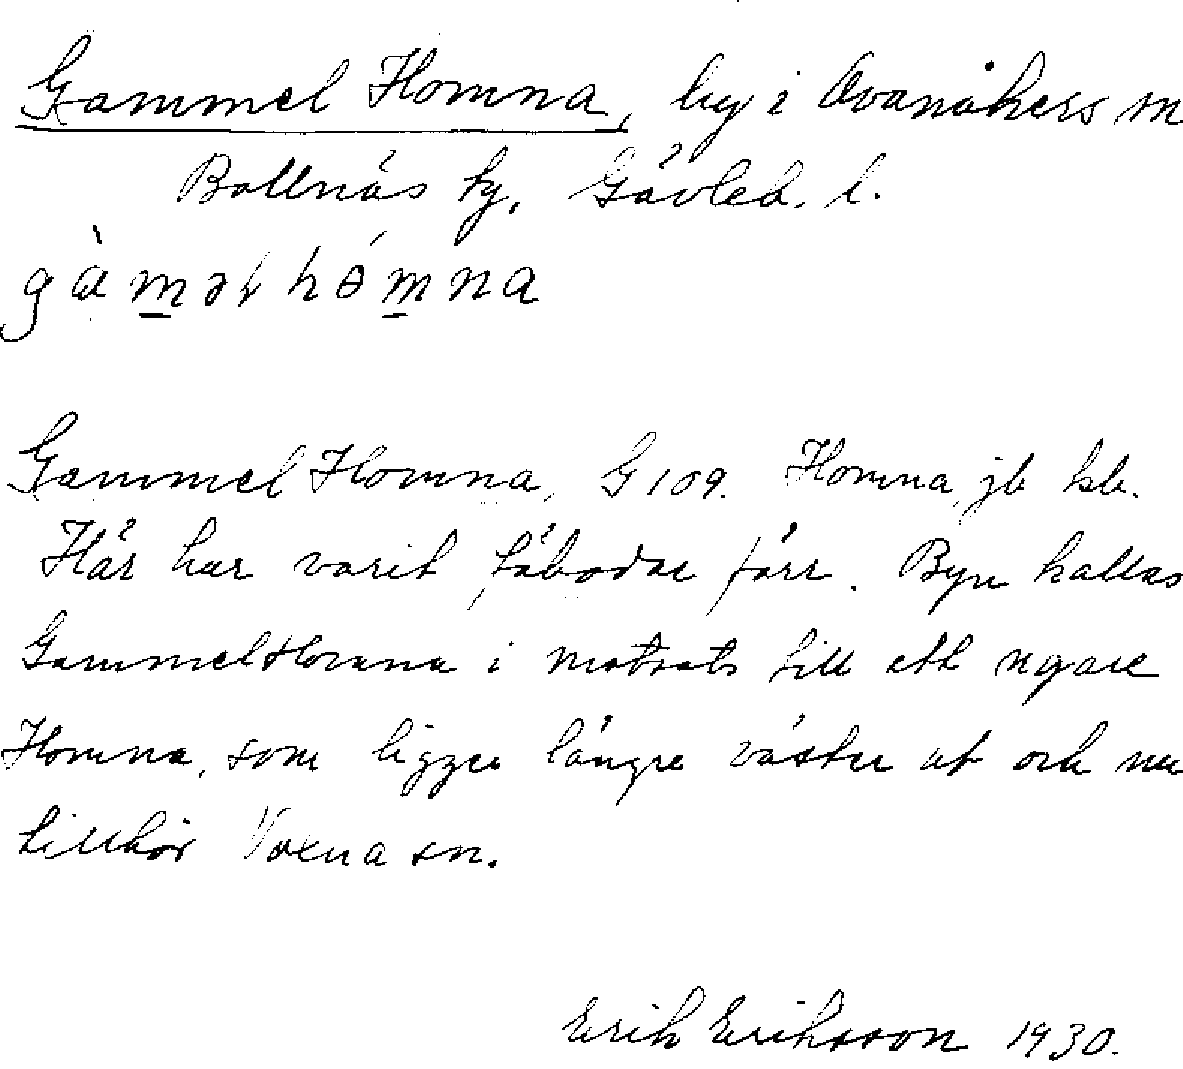 Gammel Homna, by i Ovanåkers sn
Bollnäs tg, Gävleb. l.
gàməl hómna
Gammel Homna, G 109. Homna, jb kb.
Här har varit fäbodar förr. Byn kallas
Gammel Homna i motsats till ett nyare
Homna, som ligger längre väster ut och nu
tillhör Voxna sn.
Erik Eriksson 1930.